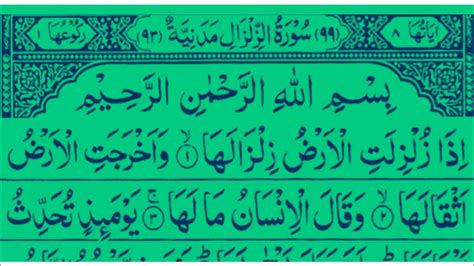 اٰيَاتُهَا ٨ (٩٩) سُوْرَةُ الزِّلْزَالِ مَدَنِيَّةٌ (٩٣) رُكُوْعُهَا ١
بِسْمِ اللهِ الرَّحْمٰنِ الرَّحِيْمِ
اِذَا زُلْزِلَتِ الْاَرْضُ زِلْزَالَهَا ۙ﴿١﴾ وَاَخْرَجَتِ الْاَرْضُ
اَثْقَالَهَا ۙ﴿٢﴾ وَقَالَ الْاِنْسَانُ مَا لَهَا ۚ﴿٣﴾ يَوْمَئِذٍ تُحَدِّثُ